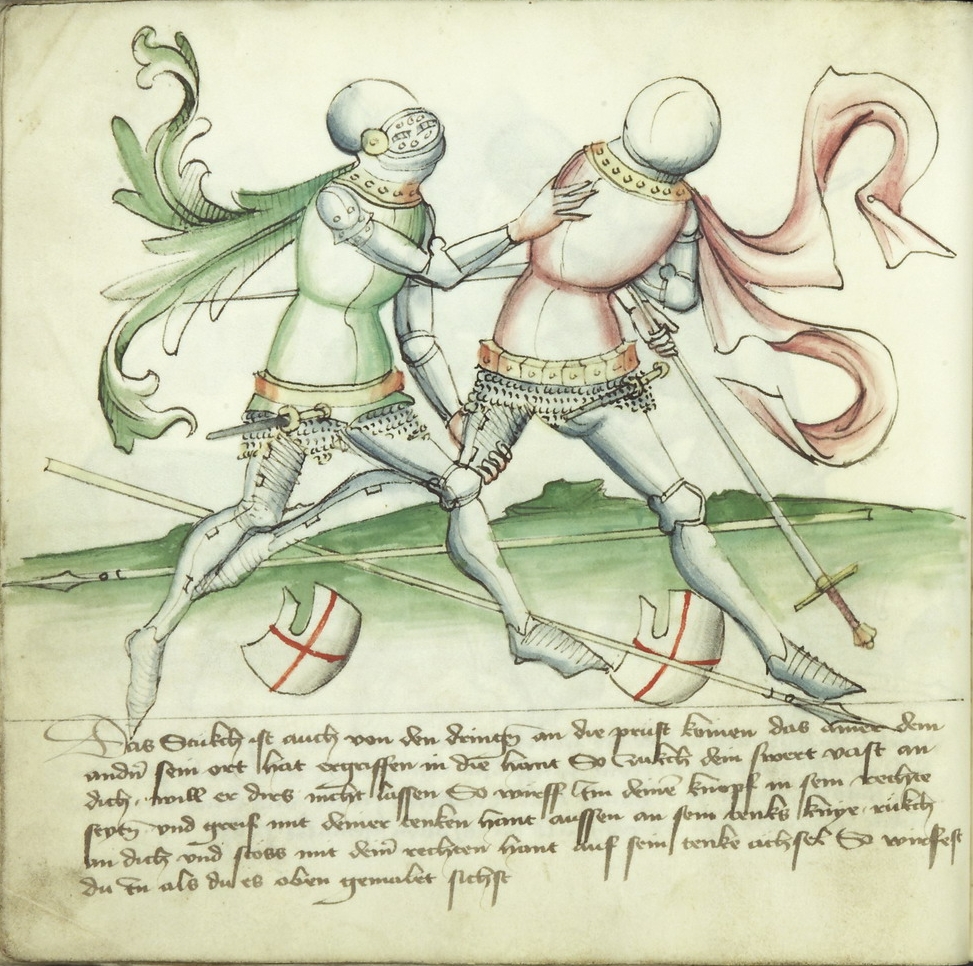 Das Stukch ist auch von den dringñ an die prust komen das ainer dem
andn̄ sein ort hat ergriffen in die hant So Zukch dein swert vast an
dich · will er dirs nicht lassen So wirff Im deinē knopf in sein rechte
seytñ vnd greif mit deiner tenken hant aussen an sein tenks knye · rukch
an dich vnd stoss mit deiñ rechten hant auf sein tenke achsel So wirfest
du In als du es oben gemalet sichst